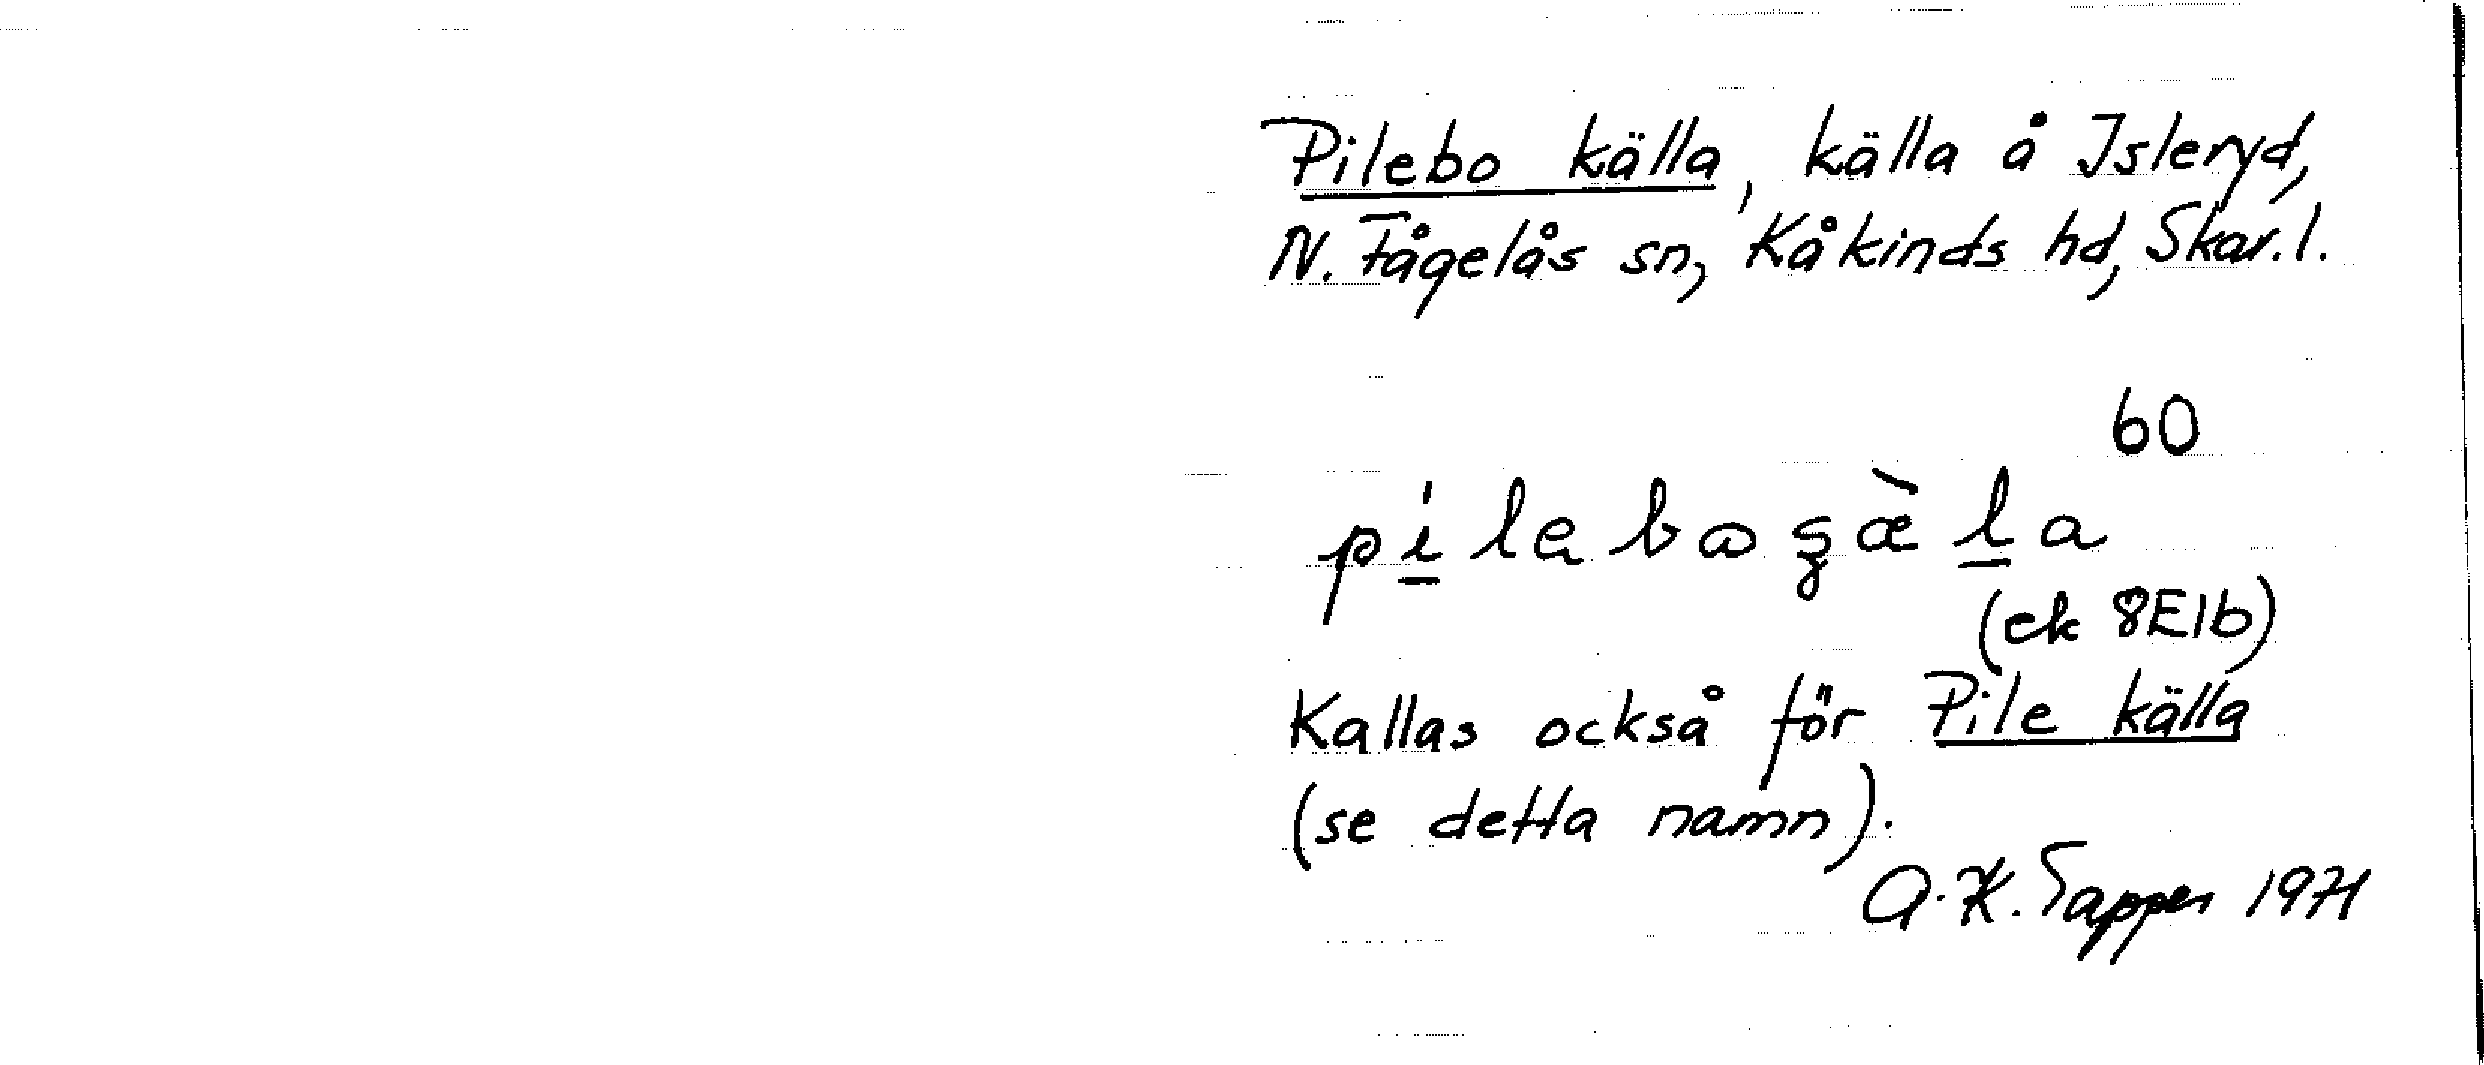 Pilebo källa, källa å Isleryd,
N. Fågelås sn, Kåkinds hd, Skar. l.
60
(ek 8E1b)
Kallas också för Pile källa
(se detta namn).
A.K. Tapper 1971